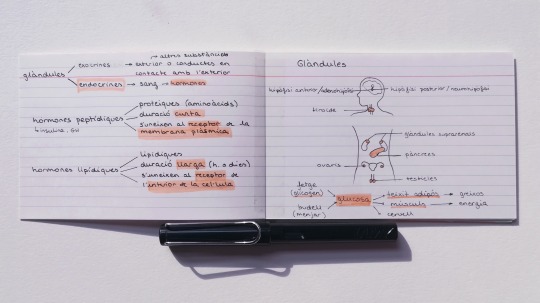 altres substàncies
exocrines → exterior o conductes en
contacte amb l'exterior
glàndules
endocrines → sang → hormones
proteiques (aminoàcids)
hormones peptídiques
duració curta
s'uneixen al receptor de la
membrana plasmàtica
lipídiques
hormones lipídiques
duració llarga (h. o dies)
s'uneixen al receptor de
l'interior de la cèl·lula
Glàndules
hipòfisi anterior/adenohipòfisi
hipòfisi posterior/neurohipòfisi
tiroide
glàndules suprarenals
pàncrees
ovaris
testicles
fetge
(glucogen)
budell
(menjar)
glucosa
teixit adipós → greixos
músculs → energia
cervell